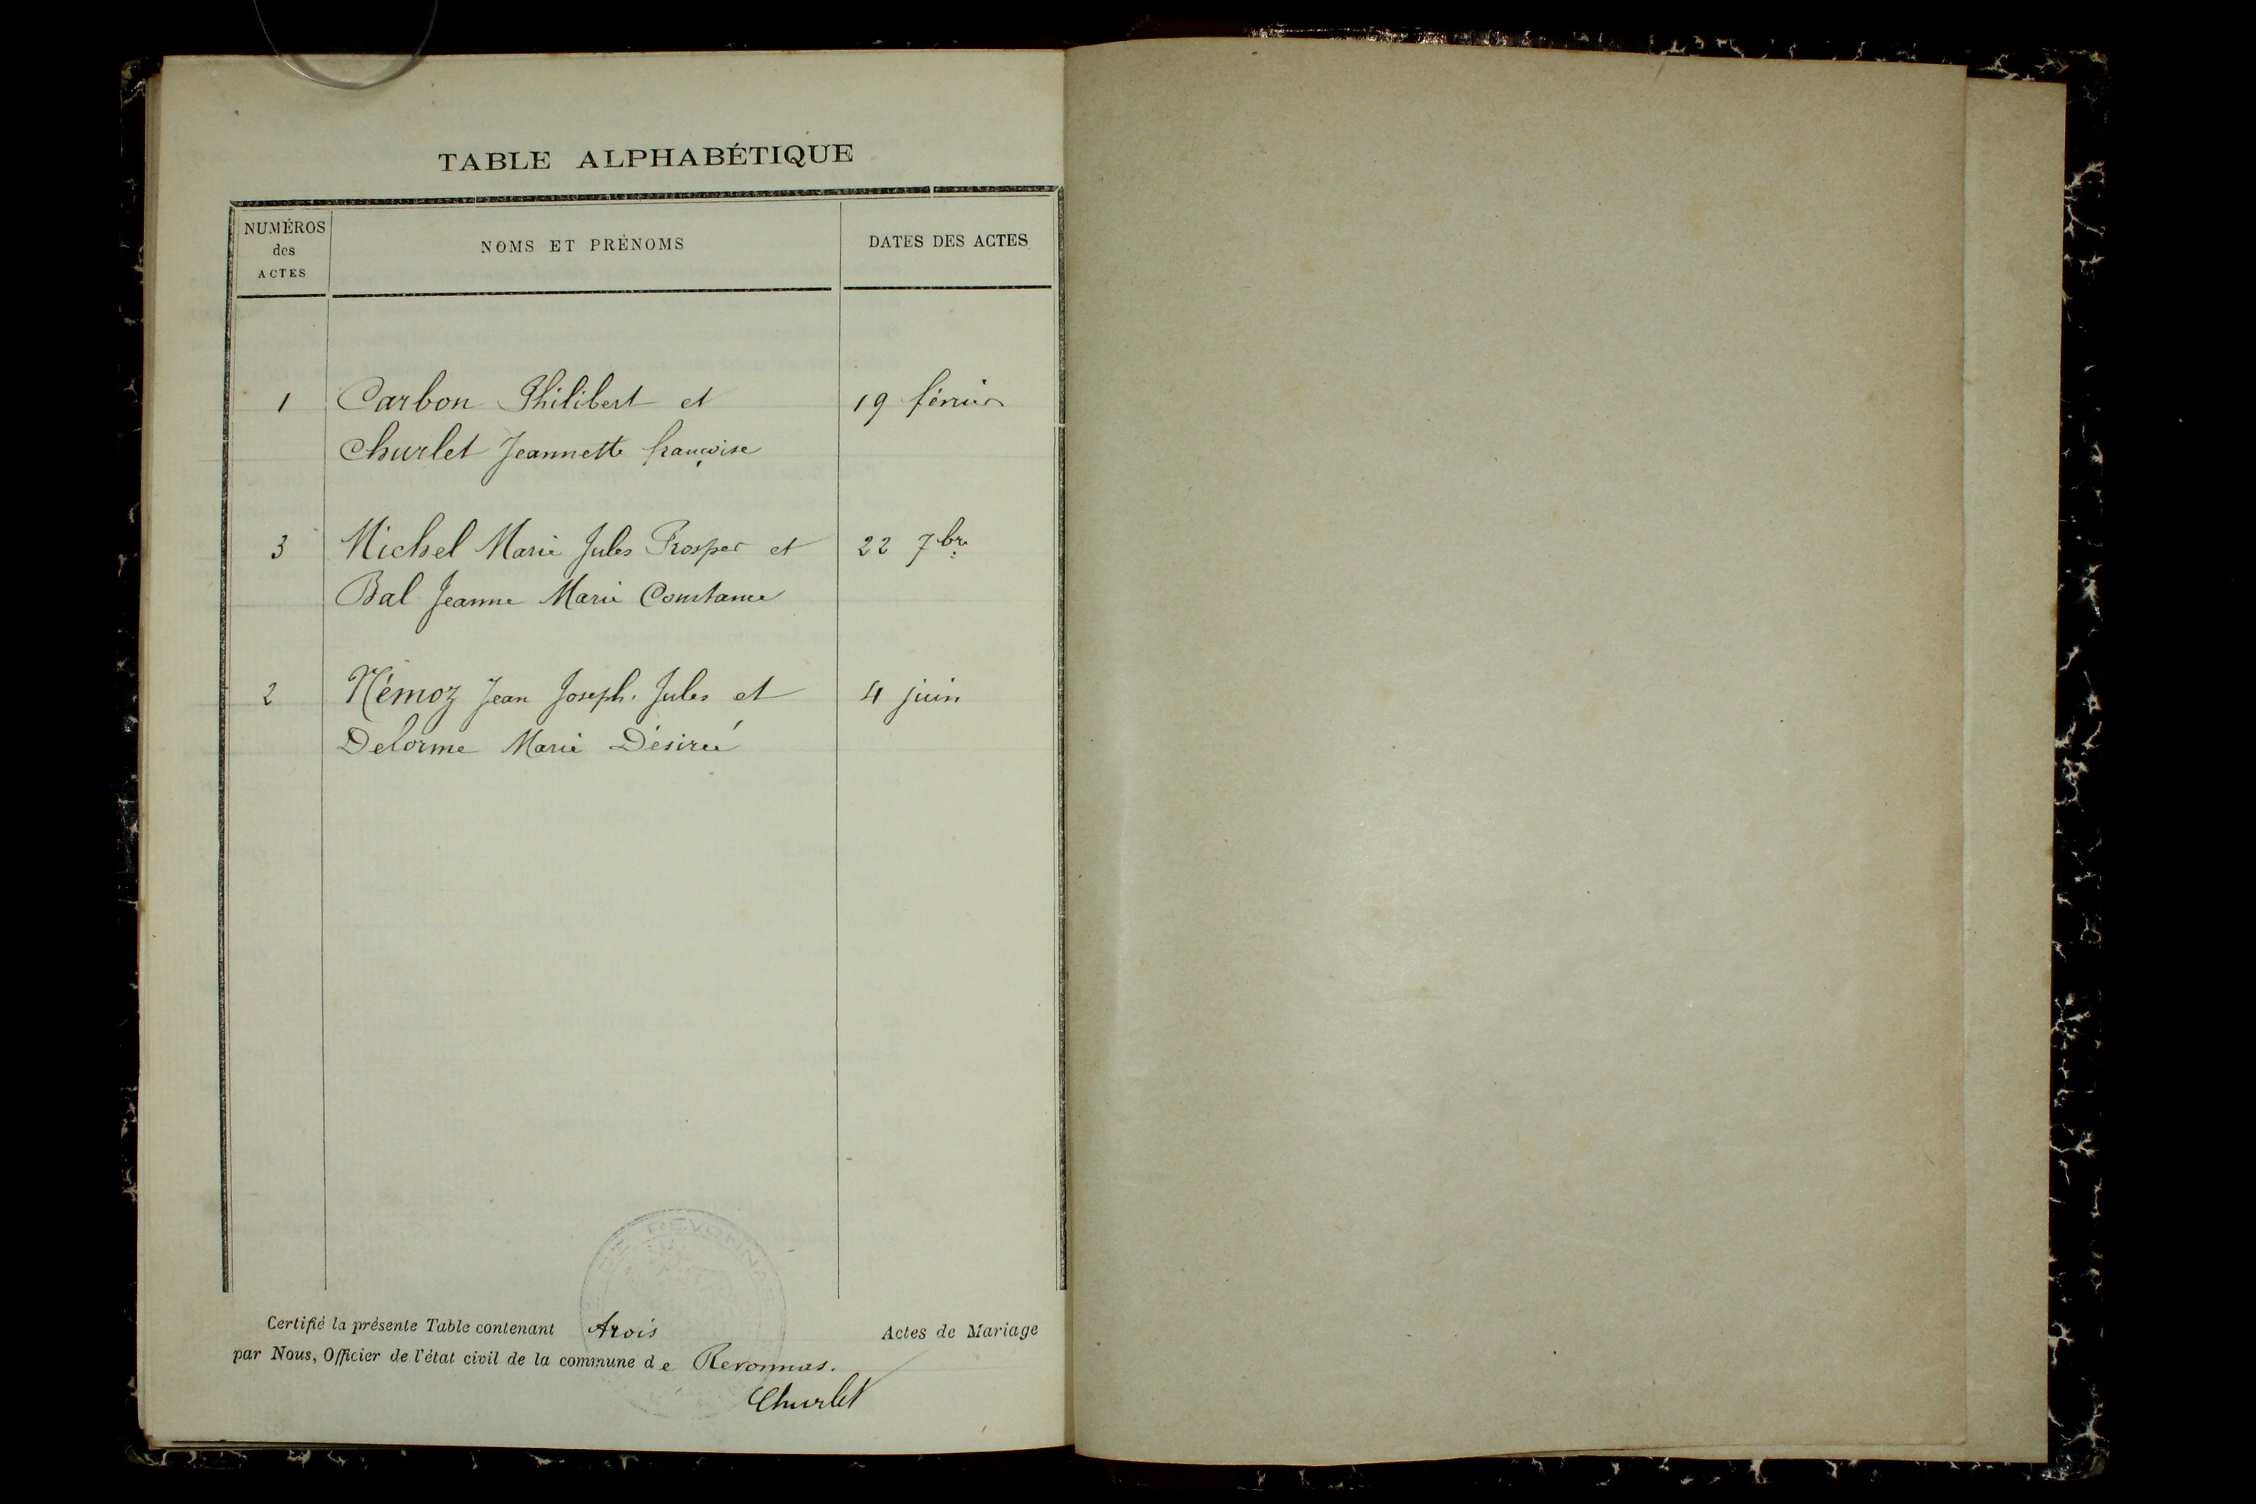 TABLE ALPHABÉTIQUE
NUMÉROS
des
ACTES
NOMS ET PRÉNOMS
DATES DES ACTES
1 Carbon Philibert et 19 février
Churlet Jeannette françoise
3 Michel Marie Jules Prosper et 22 7bre
Bal Jeanne Marie Constance
2 Némoz Jean Joseph Jules et 4 juin
Delorme Marie Désirée
REVONNAS
Certifié la présente Table contenant trois Actes de Mariage
par Nous, Officier de l'état civil de la commune de Revonnas.
Churlet